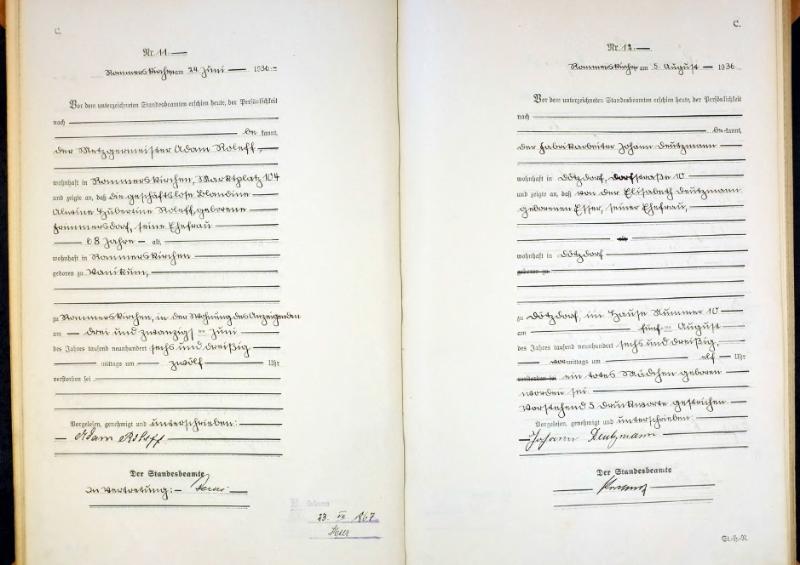 C.
Nr. 11.
Rommerskirchen am 24. Juni 1936.
Vor dem unterzeichneten Standesbeamten erschien heute, der Persönlichkeit
nach
be kannt,
der Metzgermeister Adam Roleff,
wohnhaft in Rommerskirchen, Marktplatz 104
und zeigte an, daß die geschäftslose Blandine
Alwine Hubertine Roleff, geborene
Frimmersdorf, seine Ehefrau
68 Jahre alt,
wohnhaft in Rommerskirchen
geboren zu Vanikum,
zu Rommerskirchen, in der Wohnung des Anzeigenden
am drei und zwanzigsten Juni
des Jahres tausend neunhundert sechs und dreißig,
mittags um zwölf Uhr
verstorben sei
Vorgelesen, genehmigt und unterschrieben:
Adam Roleff
Der Standesbeamte
In Vertretung:
23. 1967
C.
Nr. 12.
Rommerskirchen am 5. August 1936.
Vor dem unterzeichneten Standesbeamten erschien heute, der Persönlichkeit
nach
be kannt,
der Fabrikarbeiter Johann Deutzmann
wohnhaft in Dötzdorf, Dorfstraße 10
und zeigte an, daß von der Elisabeth Deutzmann
geborenen Esser, seiner Ehefrau,
alt,
wohnhaft in Dötzdorf
geboren zu
zu Dötzdorf, im Hause Nummer 10
am fünften August
des Jahres tausend neunhundert sechs und dreißig,
vormittags um elf Uhr
verstorben sei ein totes Mädchen geboren
worden sei.
Vorstehend 5 Druckworte gestrichen
Vorgelesen, genehmigt und unterschrieben:
Johann Deutzmann
Der Standesbeamte
St.-H.-R.